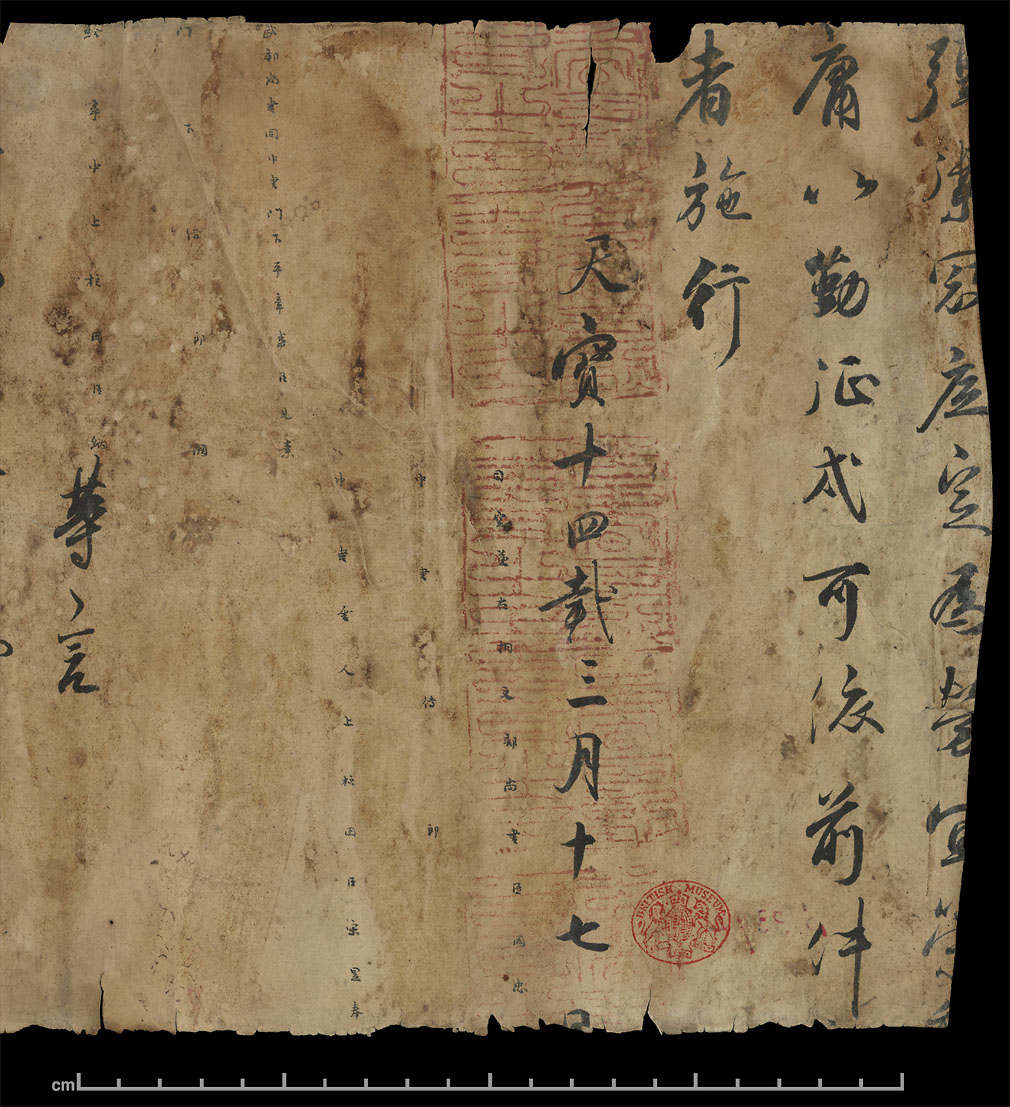 定
庸以勤征戍可依前件
者施行
天寶十四載三月十七日
司空兼右相文部尚書臣國忠
中書侍郎
中書舍人上柱國臣宋昱奉
武部尚書同中書門下平章事臣見素
門下侍郎闕
給事中上柱國臣納
等言
BRITISH MUSEUM
cm